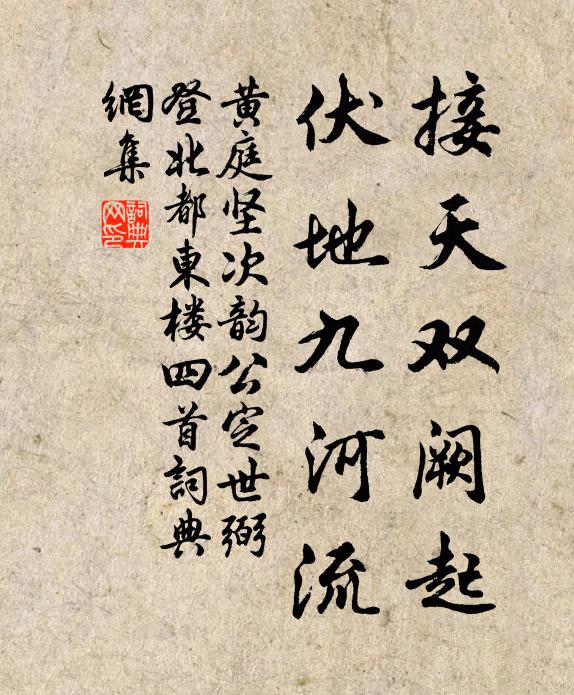 接天双阙起
伏地九河流
黄庭坚次韵公定世弼
登北都東楼四首詞典
網集
詞典
网印